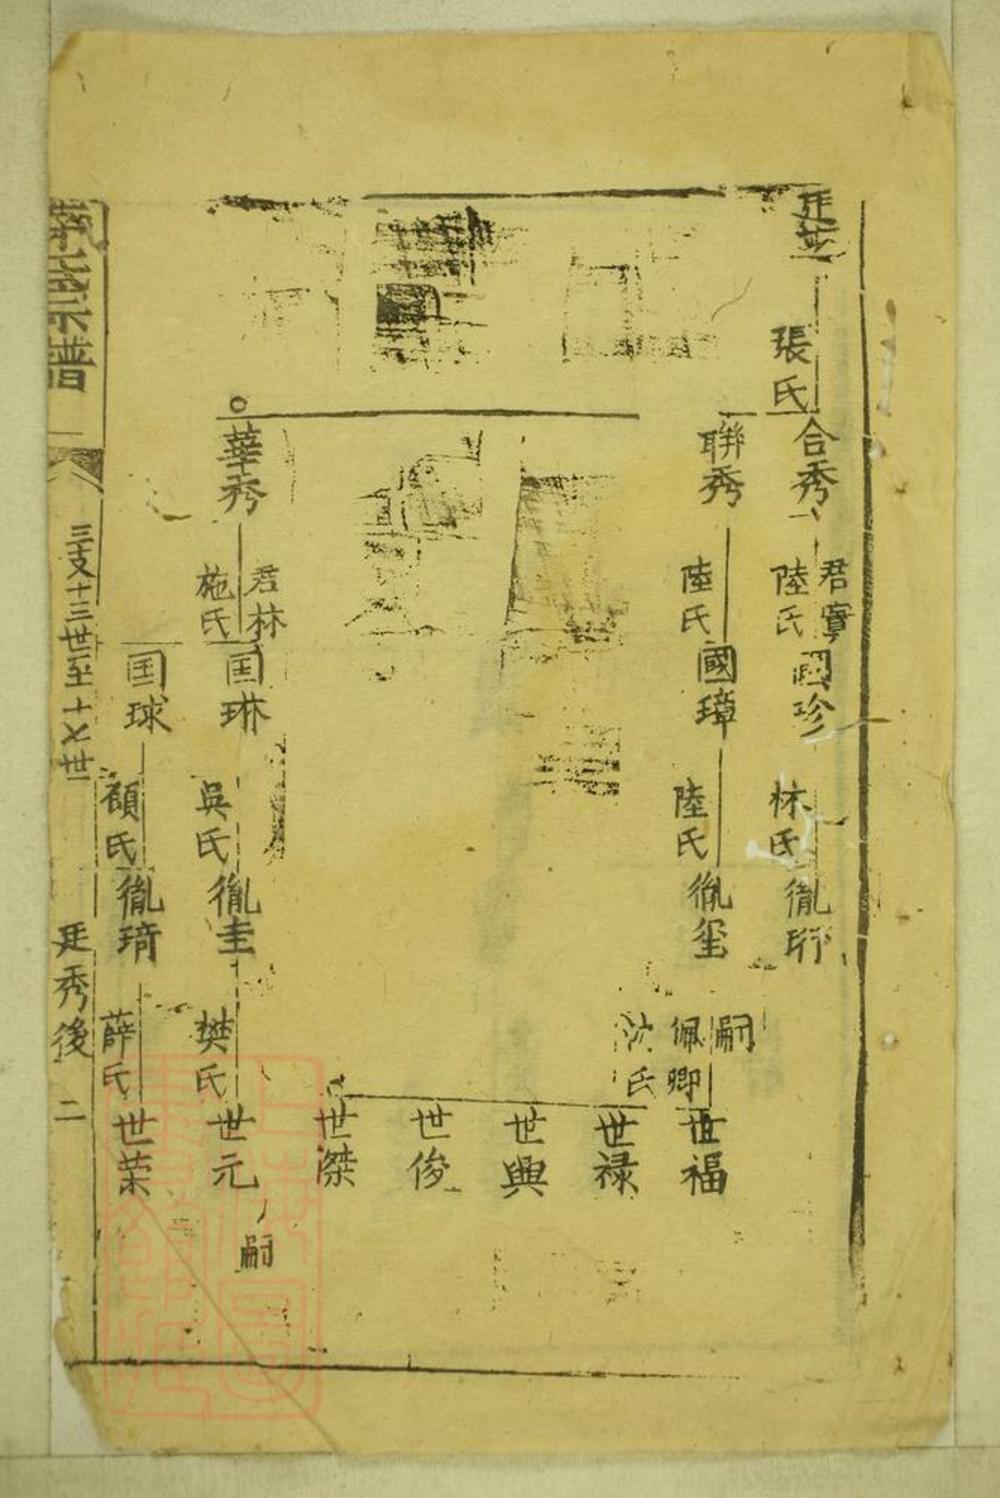 張氏
合秀
君寧
陸氏
國珍
林氏
胤珩
聨秀
陸氏
國璋
陸氏
胤玺
嗣
佩卿
沈氏
世福
世禄
世興
世俊
世傑
華秀
君林
施氏
囯琳
吳氏
胤圭
樊氏
世元
嗣
囯球
顧氏
胤琦
薛氏
世荣
宗譜
三支十三世至十七世
廷秀後
二